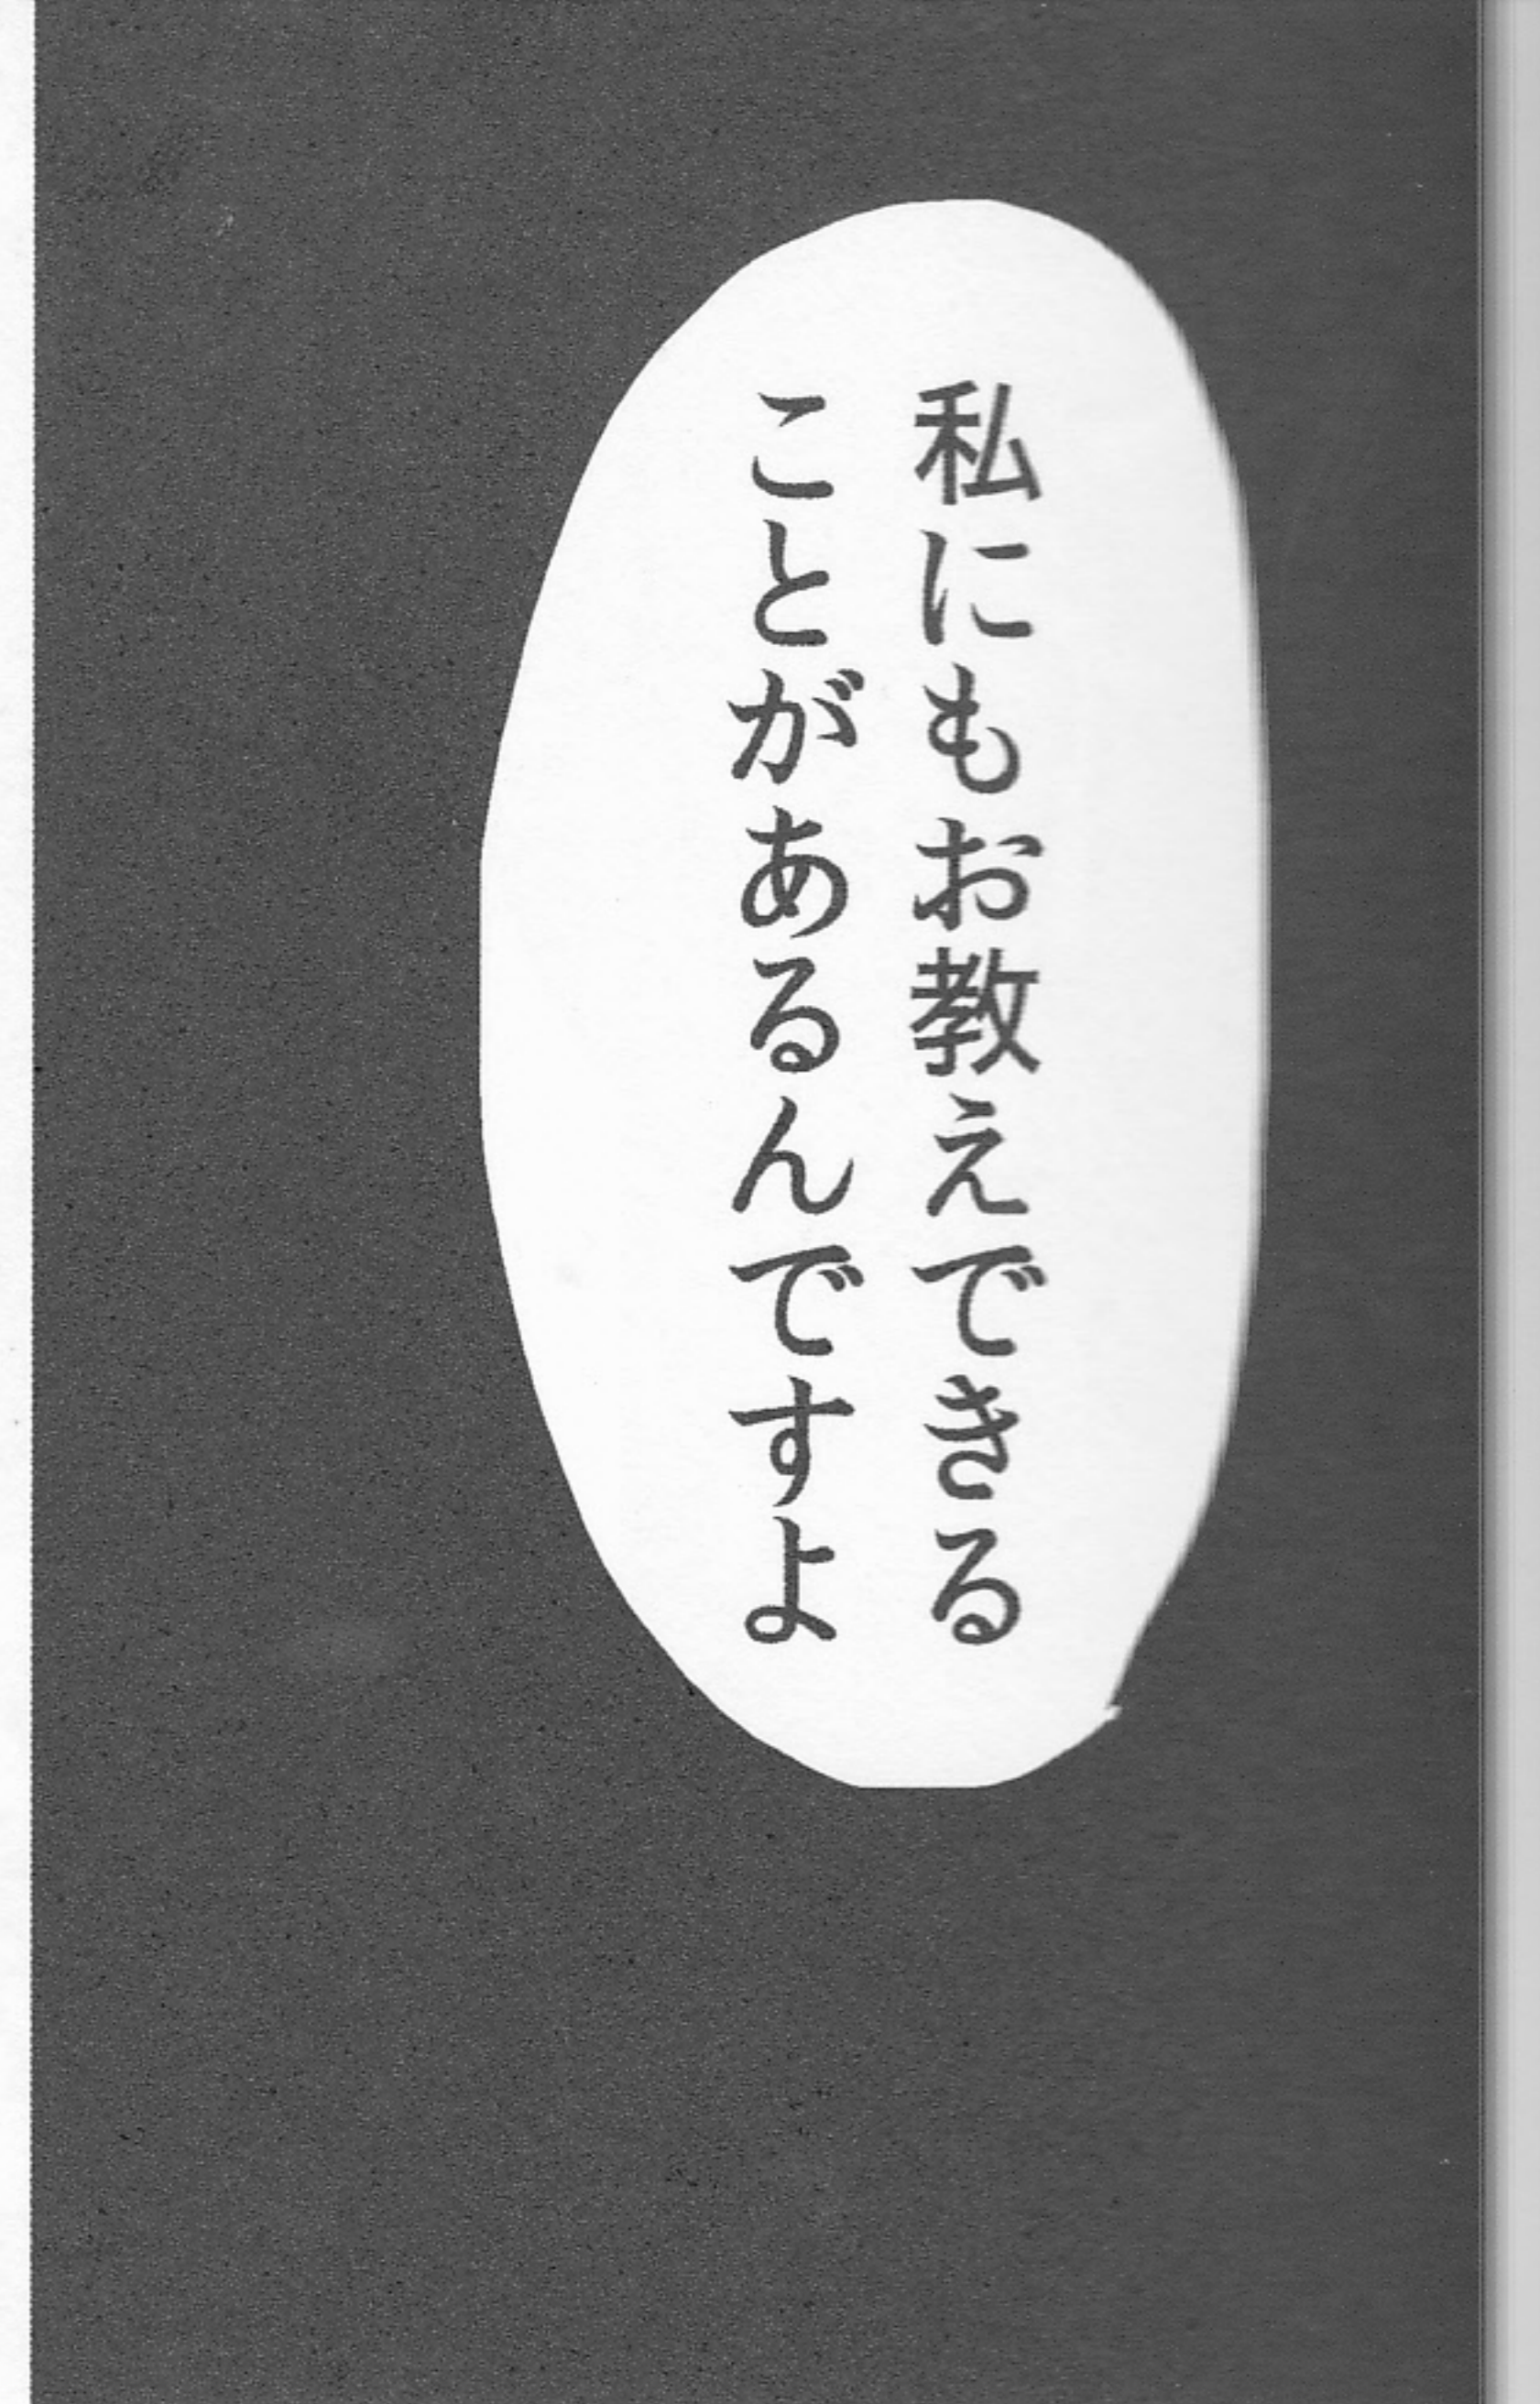 私にもお教えできる
ことがあるんですよ